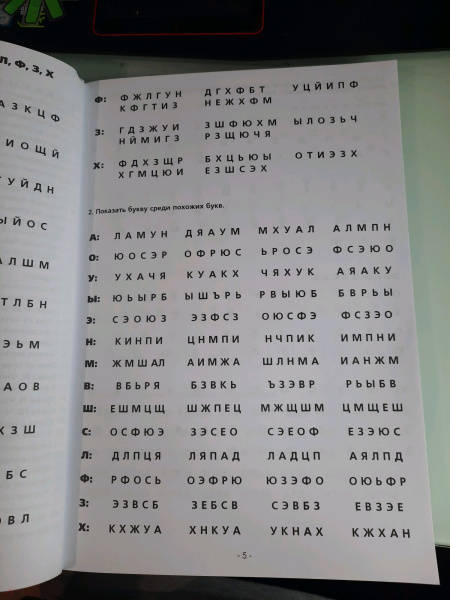 Л, Ф, З, Х
А З К Ц Ф
И О Щ Й
Т У Й Д Н
Ы Й О С
А Л Ш М
Т Л Б Н
Э Ь М
А О В
Х З Ш
Б С
О В Л
Ф: Ф Ж Л Г У Н Д Г Х Ф Б Т У Ц Й И П Ф
К Ф Г Т И З Н Е Ж Х Ф М
З: Г Д З Ж У И З Ш Ф Ю Х М Ы Л О З Ь Ч
Н Й М И Г З Р З Щ Ю Ч Я
Х: Ф Д Х З Щ Р Б Х Ц Ь Ю Ы О Т И Э З Х
Х Г М Ц Ю И Е З Ш С Э Х
2. Показать букву среди похожих букв.
А: Л А М У Н Д Я А У М М Х У А Л А Л М П Н
О: Ю О С Э Р О Ф Р Ю С Ь Р О С Э Ф С Э Ю О
У: У Х А Ч Я К У А К Х Ч Я Х У К А Я А К У
Ы: Ю Ь Ы Р Б Ы Ш Ъ Р Ь Р В Ы Ю Б Б В Р Ь Ы
Э: С Э О Ю З Э З Ф С З О Ю С Ф Э Ф С З Э О
Н: К И Н П И Ц Н М П И Н Ч П И К И М П Н И
М: Ж М Ш А Л А И М Ж А Ш Л Н М А И А Н Ж М
В: В Б Ь Р Я Б З В К Ь Ъ З Э В Р Р Ь Ы Б В
Ш: Е Ш М Ц Щ Ш Ж П Е Ц М Ж Щ Ш М Ц М Щ Е Ш
С: О С Ф Ю Э З Э С Е О С Э Е О Ф Е З Э Ю С
Л: Д Л П Ц Я Л Я П А Д Л А Д Ц П А Я Л П Д
Ф: Р Ф О С Ь О Э Ф Р Ю Ю З Э Ф О О Ю Ь Ф Р
З: Э З В С Б З Е Б С В С Э В Б З Е В З Э Е
Х: К Х Ж У А Х Н К У А У К Н А Х К Ж Х А Н
- 5 -